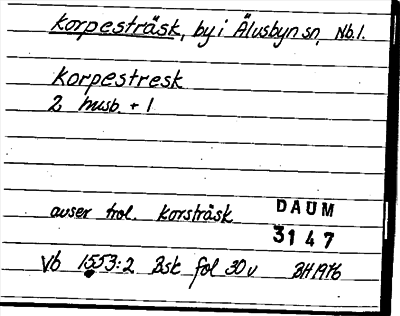 Korpesträsk, by i Älvsbyn sn, Nb.l.
Korpestresk
2 husb. + 1
avser trol. Korsträsk
DAUM
3147
Vb 1553:2 Bsk fol 30v BH 1976